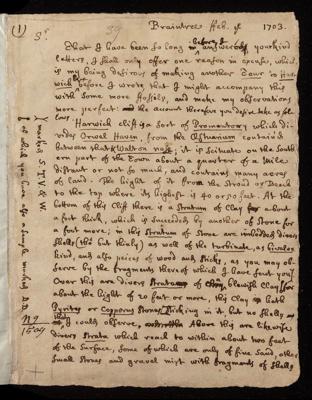 (1)
39
Braintree Feb. ye 1703.
Sr.
That I have been so long before I answered your kind
letters, I shall only offer one reason in excuse, which
is my being desirous of making another Tour to Har-
wich before I wrote that I might accompany this
with some more Fossils, and make my observations
more perfect: the account therefore you desire take as fol-
lows
Harwich cliff is a sort of Promontory which di-
vides Orwel Haven, from the Æstuarium contain'd
between that & Walton Nase; it is scituate on the South
ern part of the Town about a quarter of a Mile
distant or not so much, and contains many acres
of land. The hight of it from the Strand or Beach
to the top where its highest is 40 or 50 feet. At the
bottom of this Cliff there is a Stratum of Clay about
a foot thick, which is succeeded by another of Stone for
a foot more; in this Stratum of Stone are imbedded divers
shells (tho' but thinly) as well of the turbinate, as Bivalve
kind, and also peices of wood and sticks, as you may ob-
serve by the fragments thereof which I have sent you.
Over this are divers Strata of Blewish Clay for
about the hight of 20 feet or more, this Clay hath
Pyrites or Copperas stones sticking in it, but no shells
that I could observe, Above this are likewise
divers Strata which reach to within about two feet
of the surface, some of which are only of fine sand, other
small stones and gravel mixt with fragments of shells
marked S. T. V & W.
of which you have also a sample marked
No 9